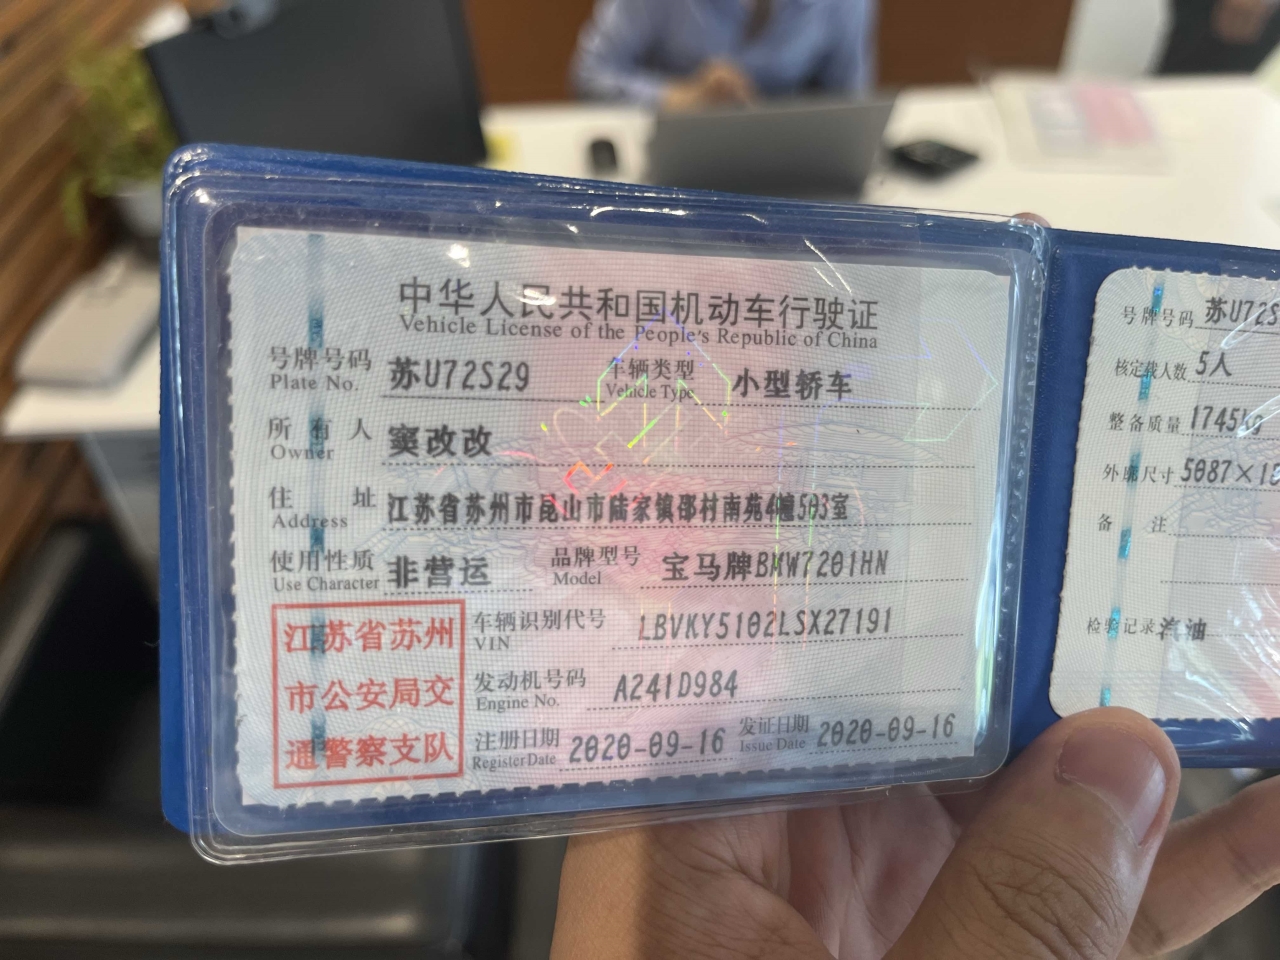 中华人民共和国机动车行驶证
Vehicle License of the People's Republic of China
号牌号码 苏U72S29 车辆类型 小型轿车
Plate No. Vehicle Type
所有人 窦改改
Owner
住址 江苏省苏州市昆山市陆家镇邵村南苑4幢503室
Address
使用性质 非营运 品牌型号 宝马牌BMW7201HN
Use Character Model
江苏省苏州
市公安局交
通警察支队
车辆识别代号 LBVKY5102LSX27191
VIN
发动机号码 A241D984
Engine No.
注册日期 2020-09-16 发证日期 2020-09-16
Register Date Issue Date
号牌号码 苏U72S
核定载人数 5人
整备质量 1745kg
外廓尺寸 5087×18
备注
检验记录 汽油